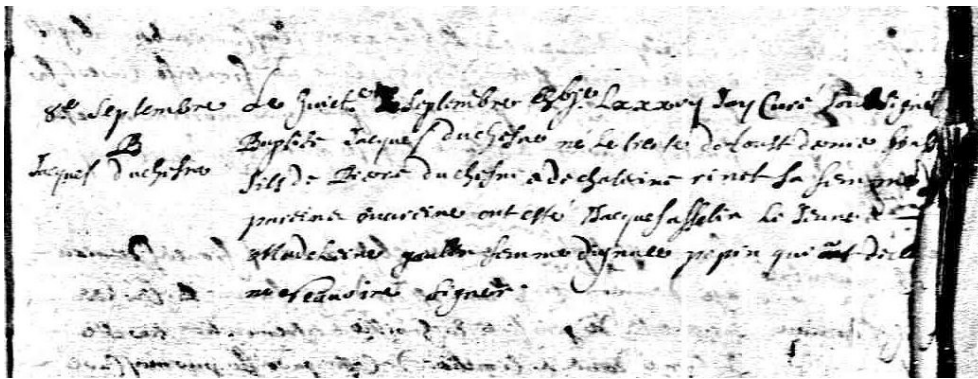 8e Septembre
B
Jacques duchesne
Le huict.e Septembre Lxxxvj Jay Curé Soubsigné
Baptisé Jacques duchesne né le trente de loust dernier
fils de Pierre duchesne & de chaterine rinet sa femme
pareine mareine ont esté Jacques asselin le Jeune &
Madeleine femme dignace pepin qui ont declaré
ne scauoire signer